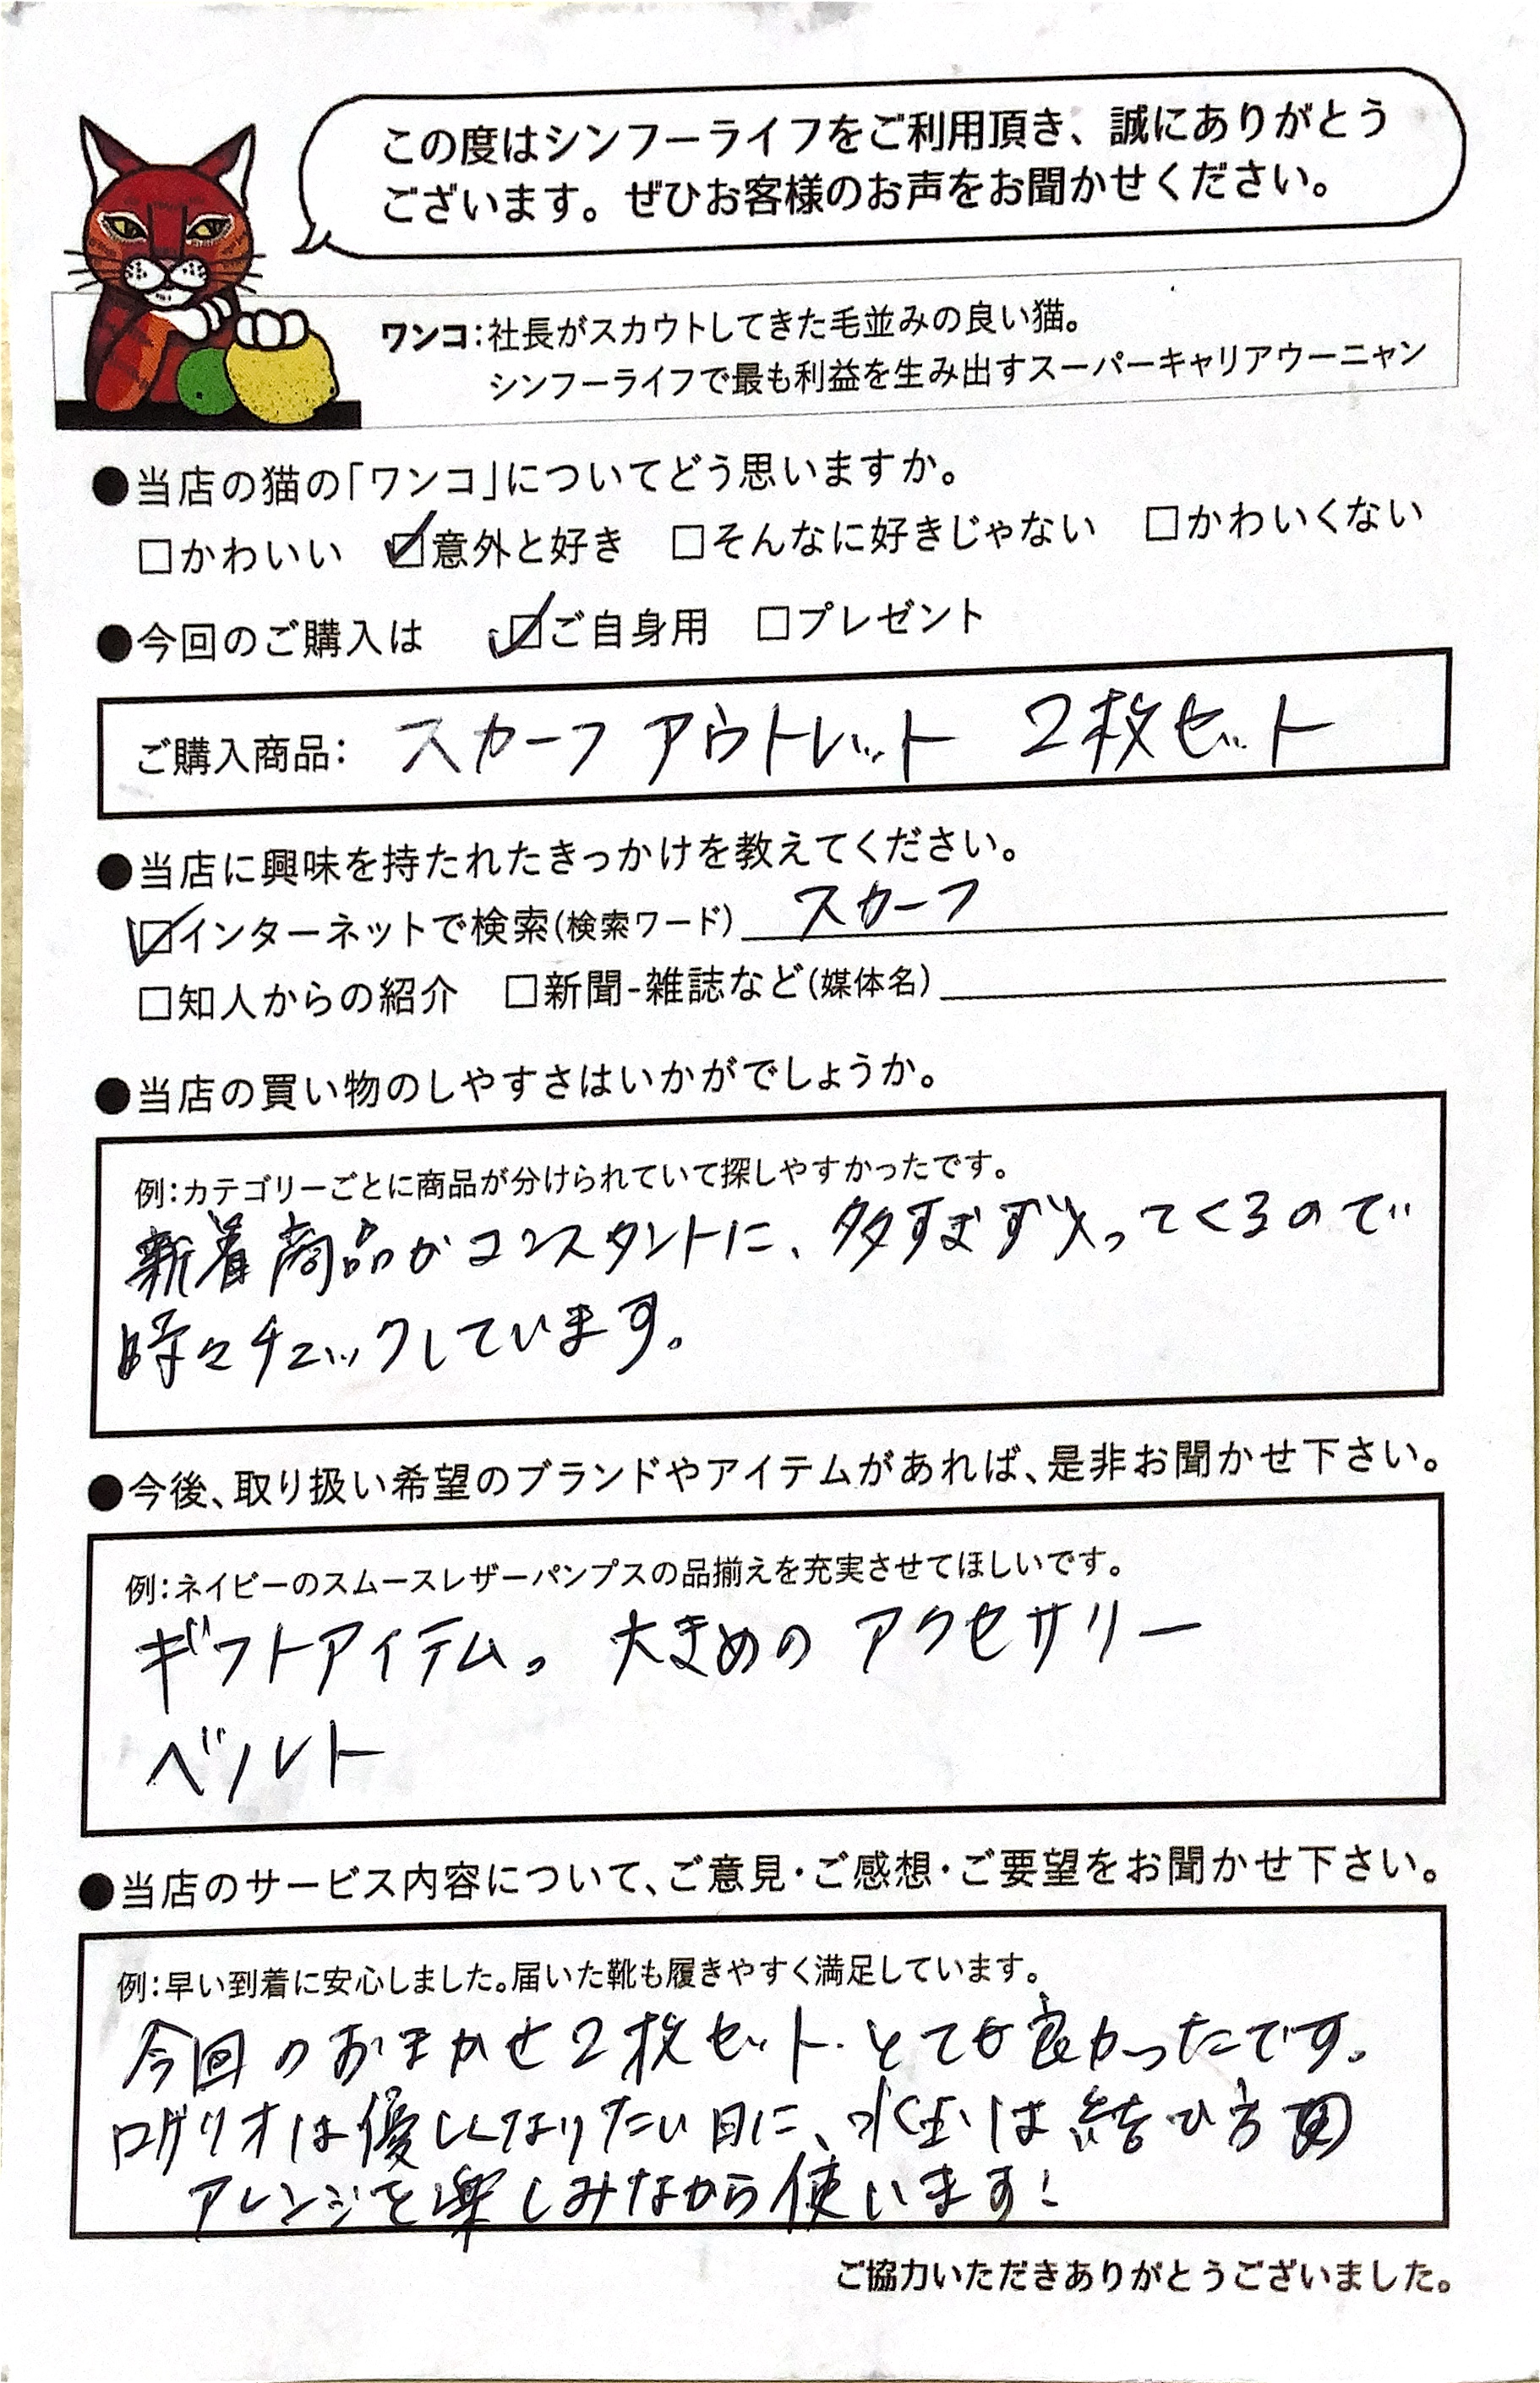 この度はシンフーライフをご利用頂き、誠にありがとう
ございます。ぜひお客様のお声をお聞かせください。
ワンコ：社長がスカウトしてきた毛並みの良い猫。
シンフーライフで最も利益を生み出すスーパーキャリアウーニャン
●当店の猫の「ワンコ」についてどう思いますか。
□かわいい ☑意外と好き □そんなに好きじゃない □かわいくない
●今回のご購入は ☑ご自身用 □プレゼント
ご購入商品： スカーフ アウトレット 2枚セット
●当店に興味を持たれたきっかけを教えてください。
☑インターネットで検索(検索ワード) スカーフ
□知人からの紹介 □新聞-雑誌など(媒体名)
●当店の買い物のしやすさはいかがでしょうか。
例：カテゴリーごとに商品が分けられていて探しやすかったです。
新着商品がコンスタントに、多すぎず入ってくるので
時々チェックしています。
●今後、取り扱い希望のブランドやアイテムがあれば、是非お聞かせ下さい。
例：ネイビーのスムースレザーパンプスの品揃えを充実させてほしいです。
ギフトアイテム。 大きめの アクセサリー
ベルト
●当店のサービス内容について、ご意見・ご感想・ご要望をお聞かせ下さい。
例：早い到着に安心しました。届いた靴も履きやすく満足しています。
今回のおまかせ2枚セット、とても良かったです。
ロゲリオは優しくなりたい日に、水玉は結び方
アレンジを楽しみながら使います！
ご協力いただきありがとうございました。